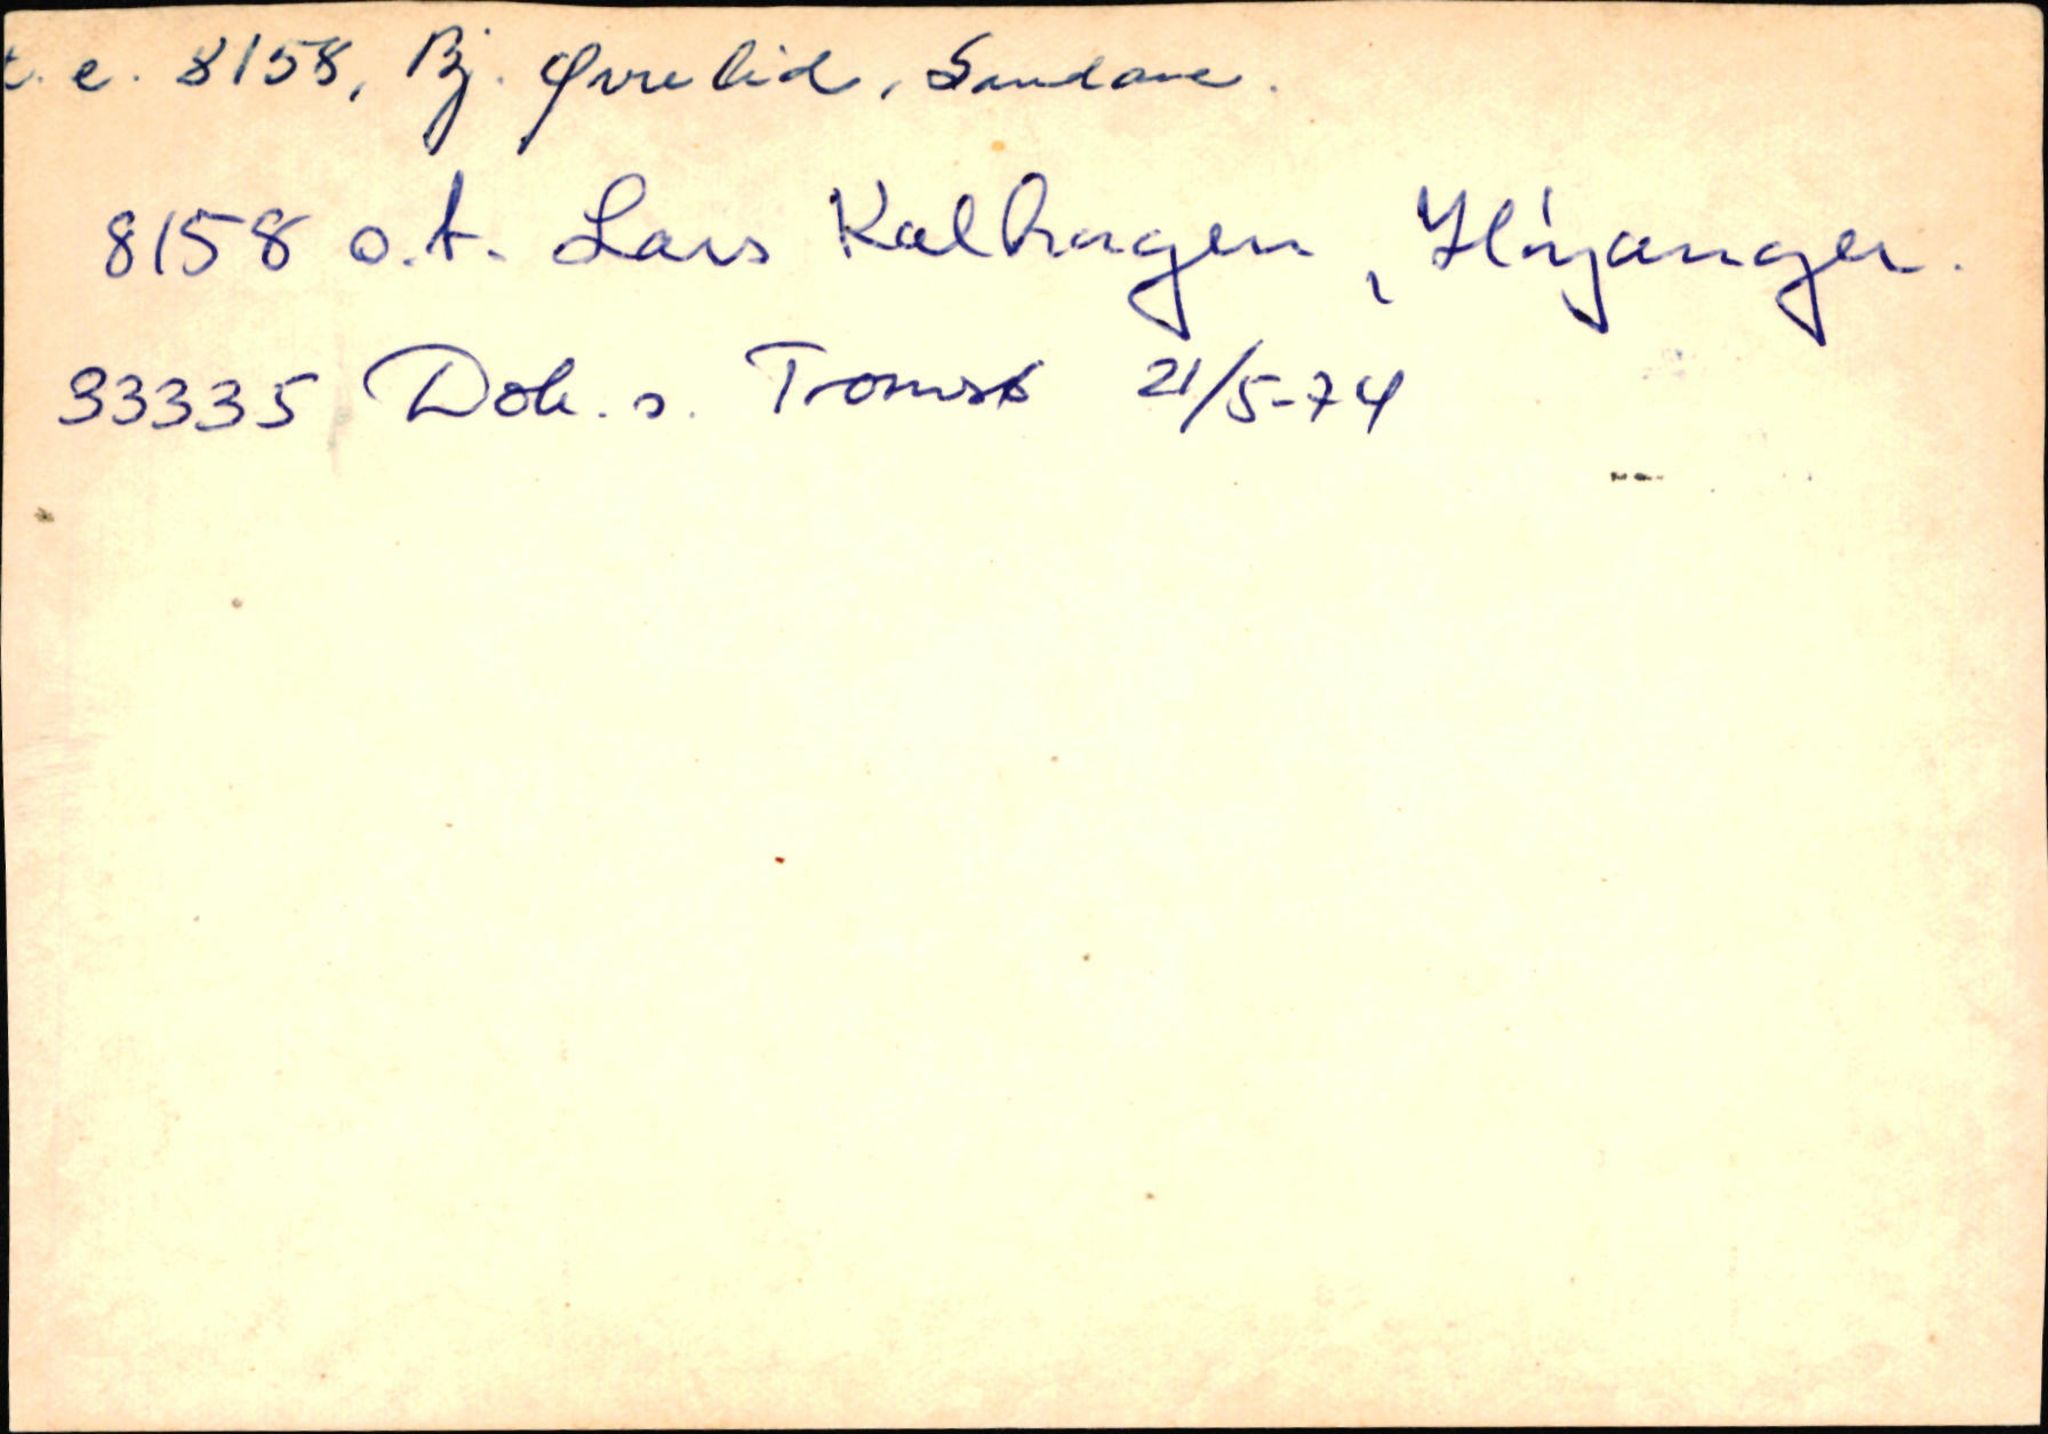 t. e. 8158, Bj. Øvrelid, Sandane.
8158 o.t. Lars Kalhagen, Høyanger.
33335 Dok. s. Tromsø 21/5-74